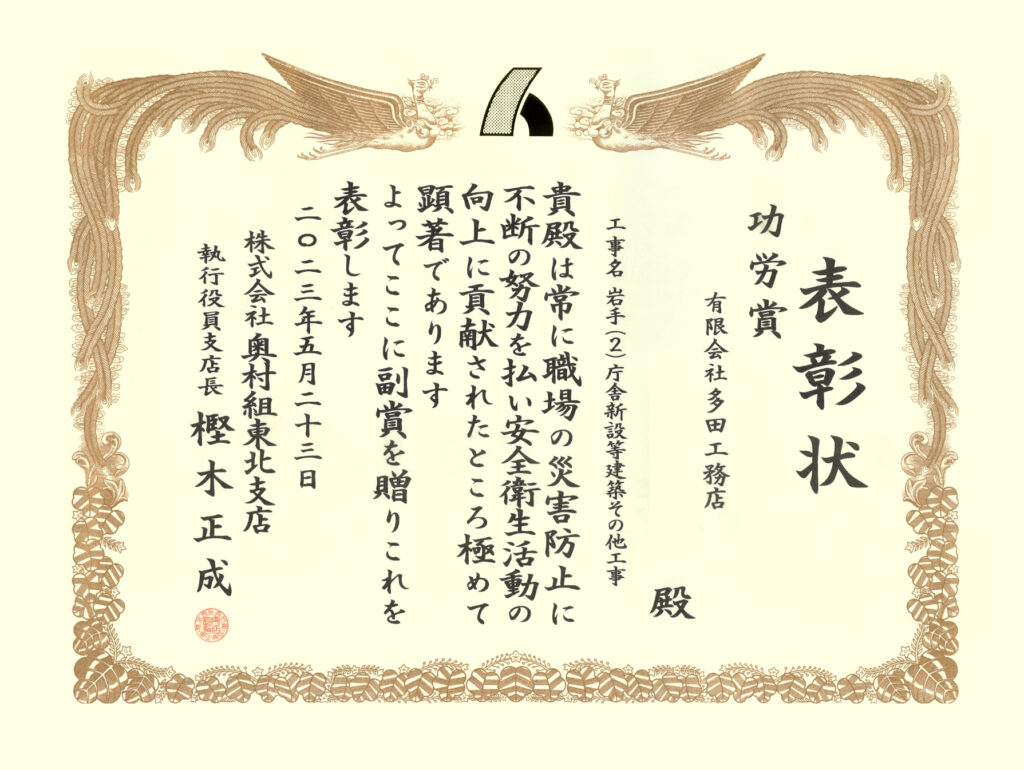 表彰状
功労賞
有限会社多田工務店
殿
工事名 岩手(2)庁舎新設等建築その他工事
貴殿は常に職場の災害防止に
不断の努力を払い安全衛生活動の
向上に貢献されたところ極めて
顕著であります
よってここに副賞を贈りこれを
表彰します
二〇二三年五月二十三日
株式会社奥村組東北支店
執行役員支店長 樫木正成